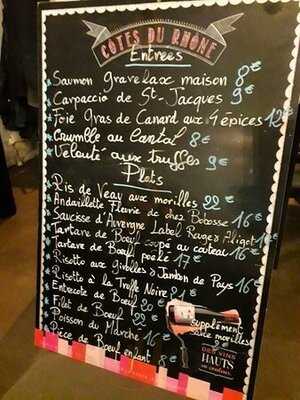 CÔTES DU RHÔNE
Entrées
Saumon gravelax maison 8€
Carpaccio de St-Jacques 9€
Foie Gras de Canard aux 4 épices 12€
Crumble au Cantal 8€
Velouté aux truffes 9€
Plats
Ris de Veau aux morilles 22€
Andouillette Fleurie de chez Bobosse 16€
Saucisse d'Auvergne Label Rouge & Aligot 16€
Tartare de Boeuf coupé au couteau 16€
Tartare de Boeuf poêlé 17€
Risotto aux Girolles & Jambon de Pays 16€
Risotto à la Truffe Noire 21€
Entrecote de Boeuf 20€
Filet de Boeuf 22
Poisson du Marché 16€
Pièce de Boeuf enfant 8€
supplément
sauce morilles
9€
DES VINS
HAUTS
en couleurs